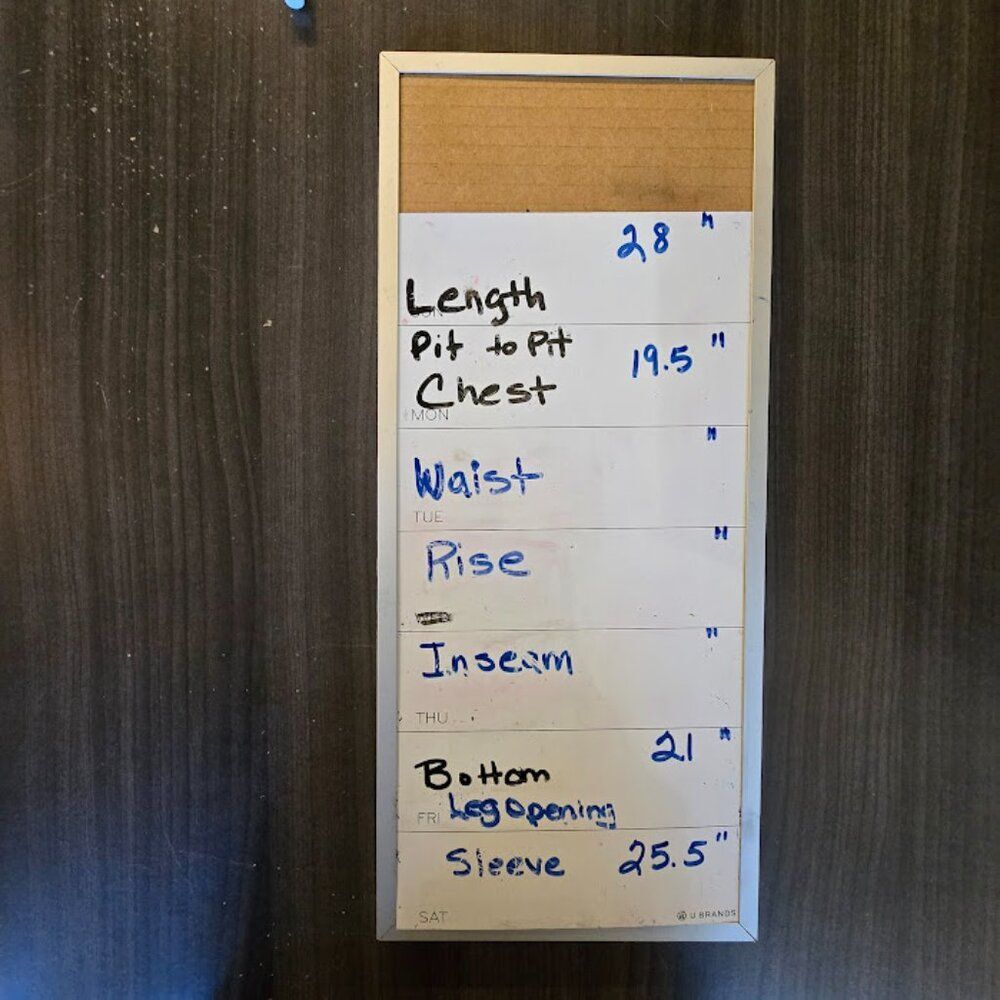 28 "
Length
Pit to Pit
19.5 "
Chest
MON
"
Waist
TUE
"
Rise
"
Inseam
THU
21 "
Bottom
FRI Leg Opening
Sleeve 25.5 "
SAT
U BRANDS